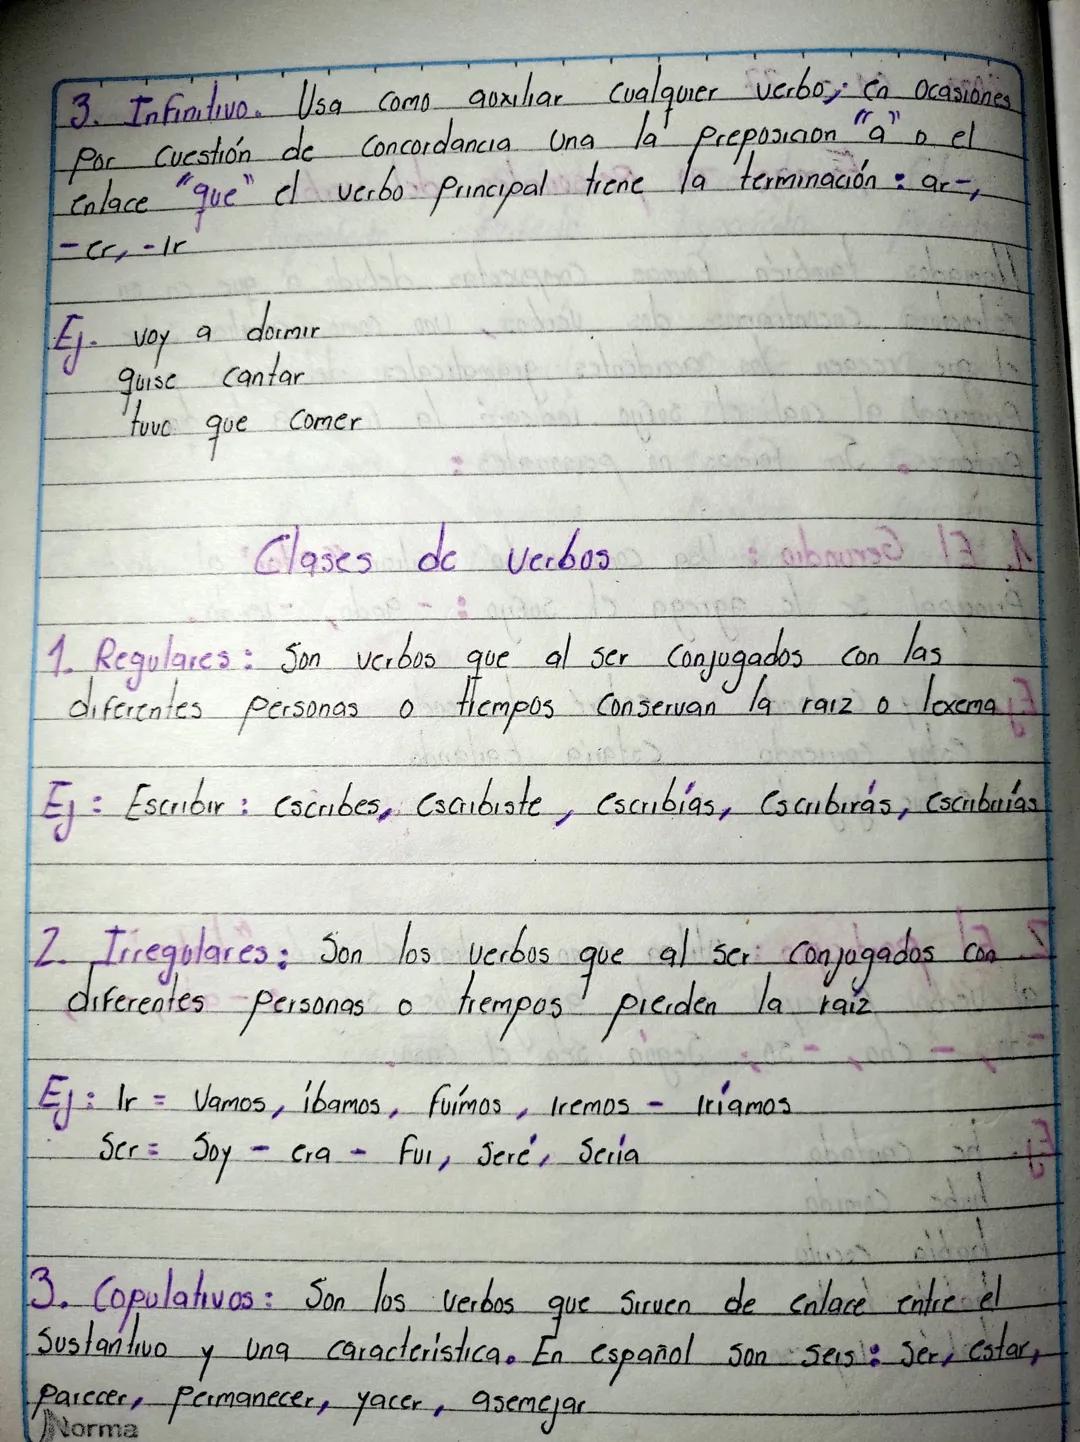 3. Infinitivo. Usa como auxiliar cualquier verbo; en ocasiones
por cuestión de concordancia una la preposicion "a" o el
enlace "que" el verbo principal tiene la terminación: ar-,
-er, -ir
Ej. voy a dormir
quise cantar
tuvo que comer
Clases de verbos
1. Regulares: Son verbos que al ser conjugados con las
diferentes personas o tiempos conservan la raiz o lexema
Ej: Escribir: escribes, escribiste, escribías, escribirás, escribirías
2. Irregulares: Son los verbos que al ser conjugados con
diferentes personas o tiempos pierden la raíz
Ej: Ir = Vamos, íbamos, fuímos, Iremos - Iríamos
Ser = Soy - era - Fui, Seré, Sería
3. Copulativos: Son los verbos que sirven de enlace entre el
sustantivo y una característica. En español son seis: Ser, estar,
parecer, permanecer, yacer, asemejar
Norma